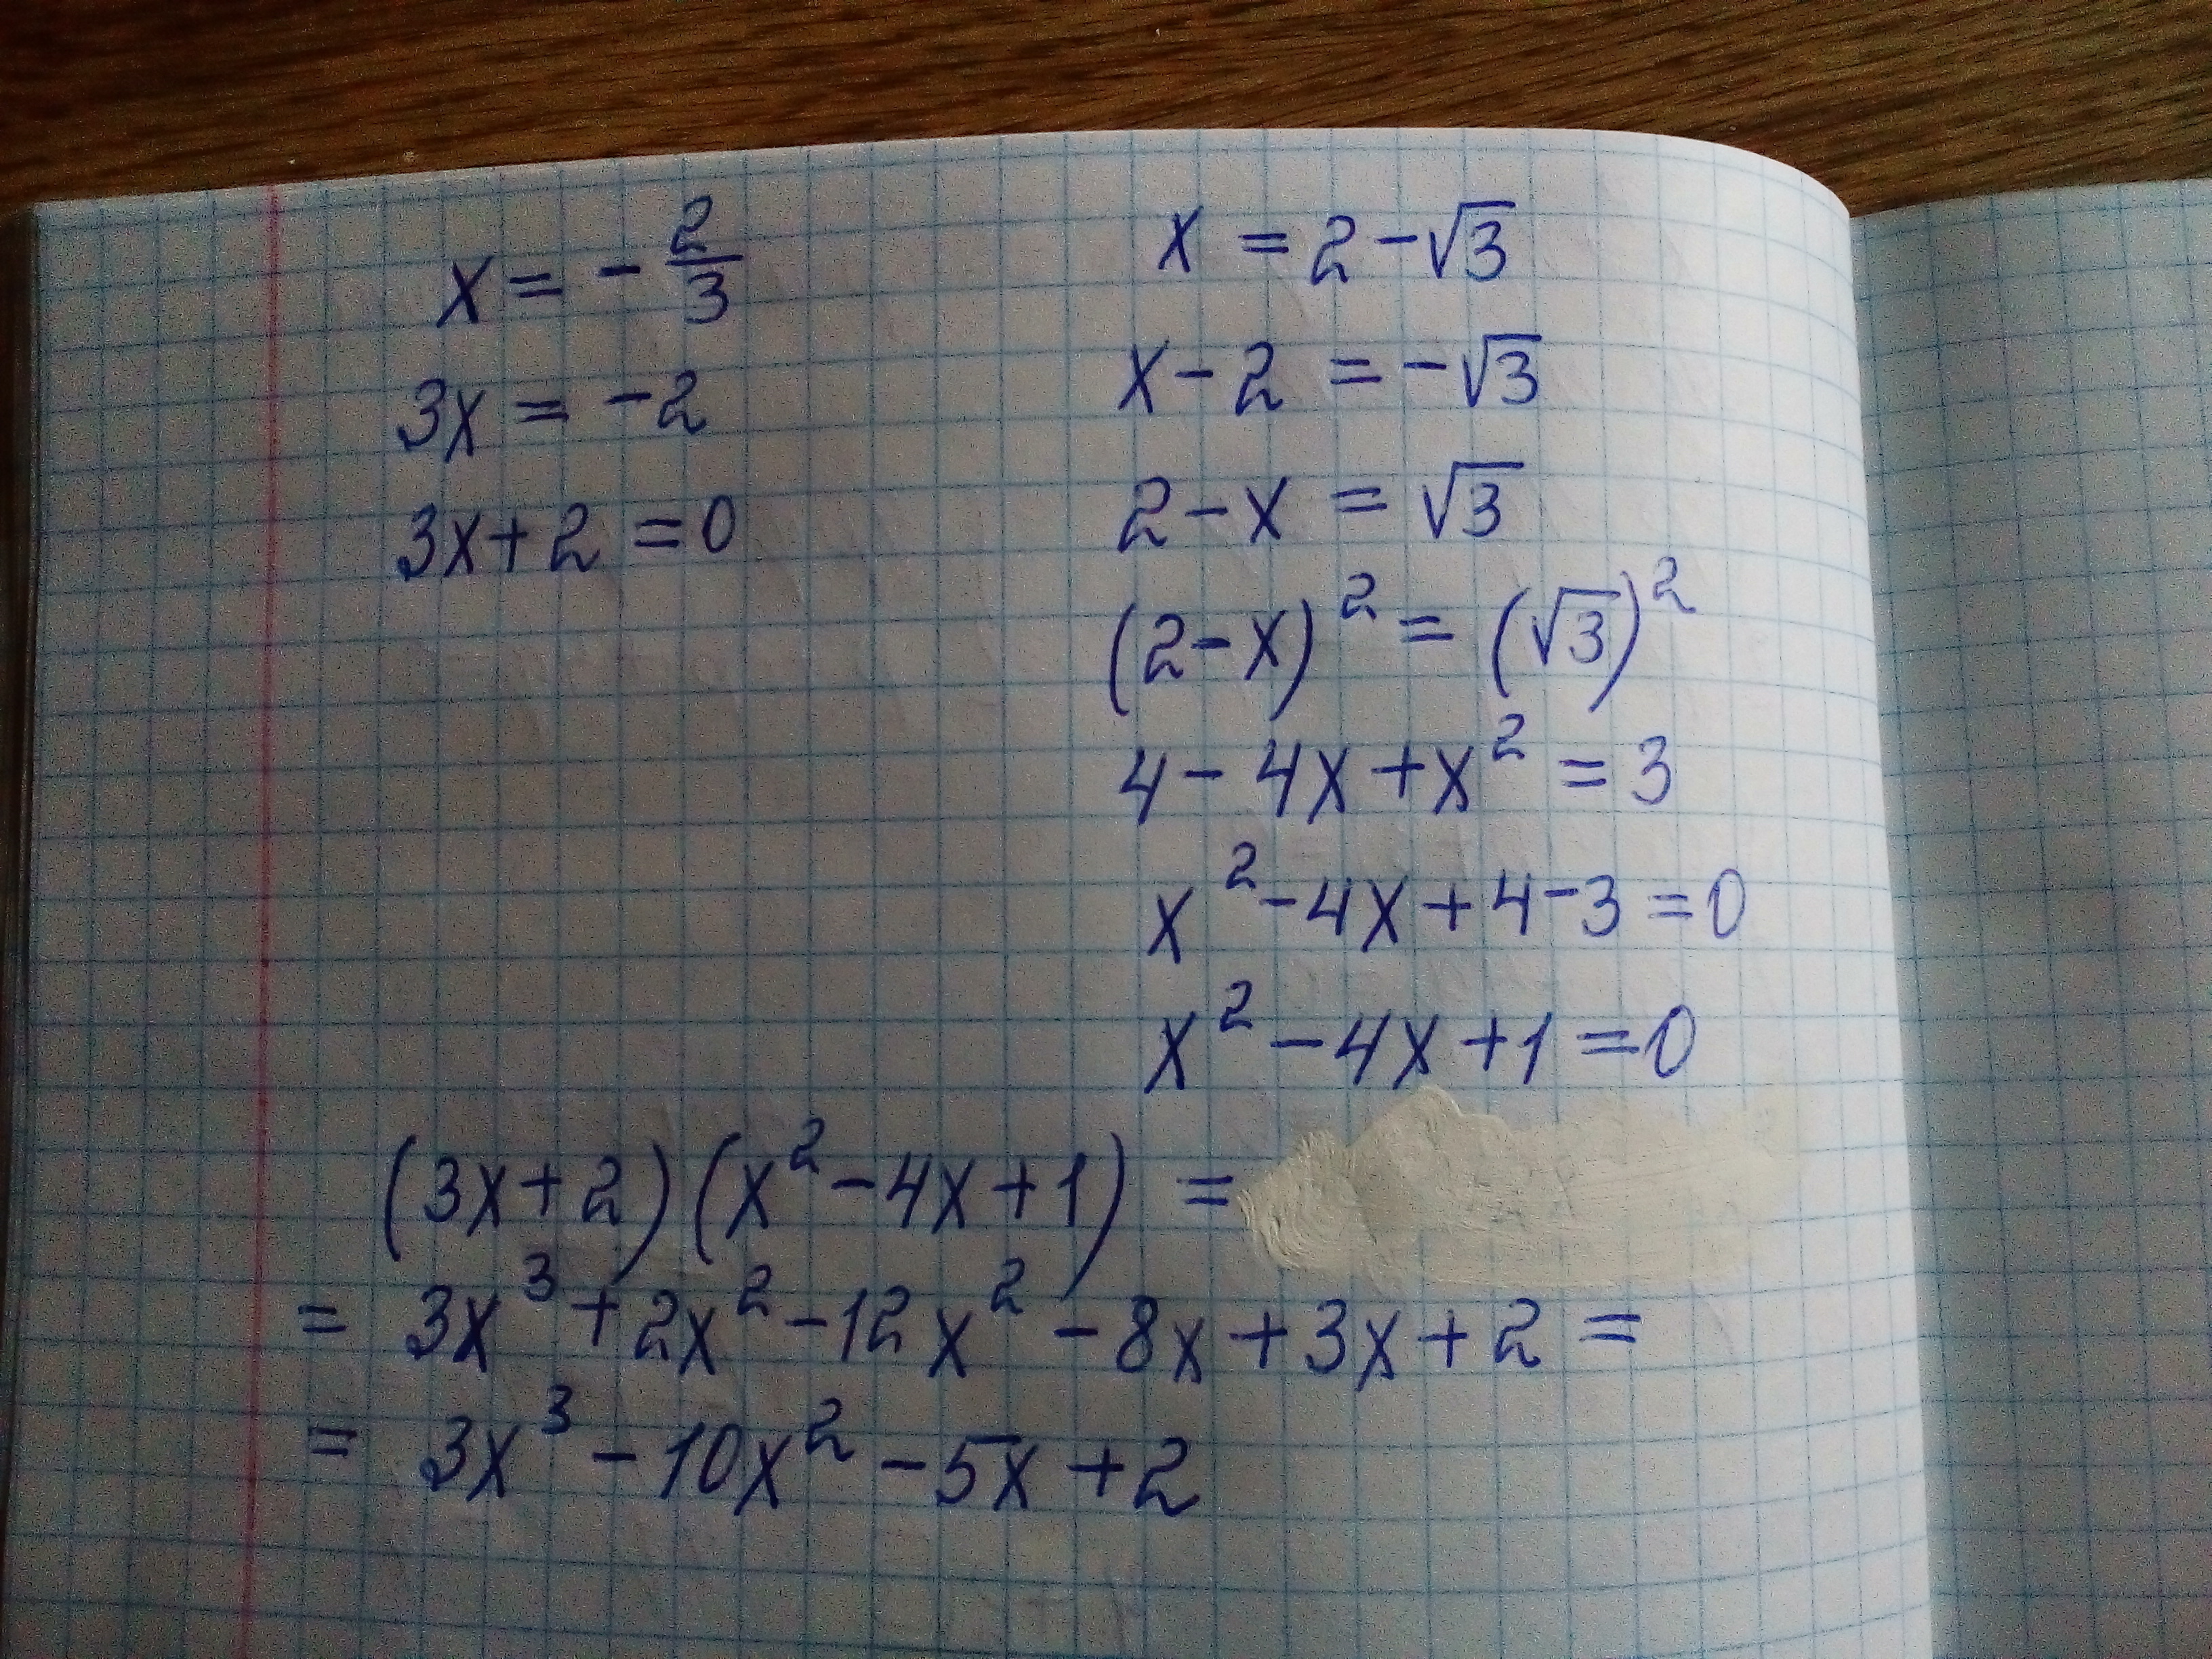 x = -2/3
3x = -2
3x+2=0
x = 2-√3
x-2 = -√3
2-x = √3
(2-x)² = (√3)²
4-4x+x² = 3
x²-4x+4-3=0
x²-4x+1=0
(3x+2)(x²-4x+1) =
= 3x³+2x²-12x²-8x+3x+2=
= 3x³-10x²-5x+2